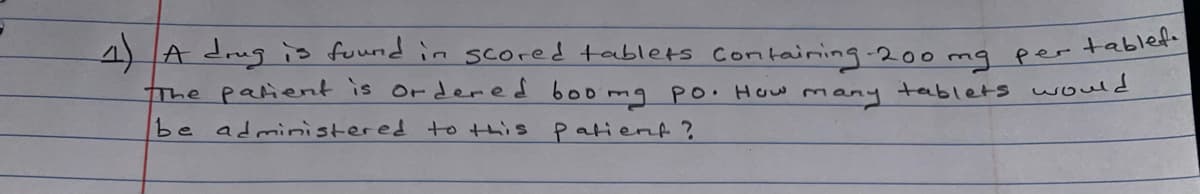 1) A drug is found in scored tablets containing 200 mg per tablet.
The patient is ordered 600 mg po. How many tablets would
be administered to this patient?